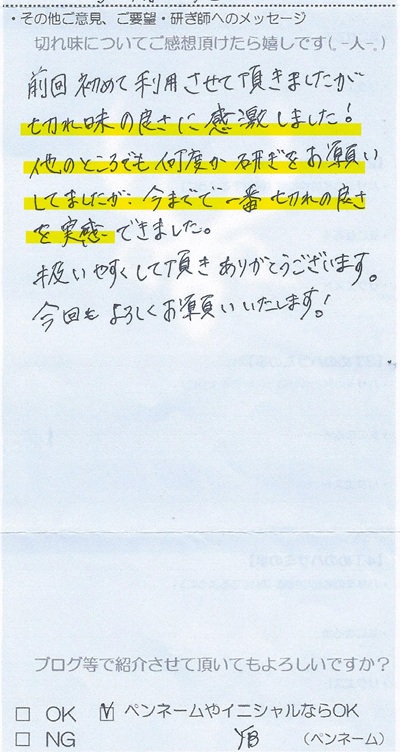 ・その他ご意見、ご要望・研ぎ師へのメッセージ
切れ味についてご感想頂けたら嬉しです(｡-人-｡)
前回初めて利用させて頂きましたが
切れ味の良さに感激しました!
他のところでも何度か研ぎをお願い
してましたが、今までで一番切れの良さ
を実感できました。
扱いやすくして頂きありがとうございます。
今回もよろしくお願いいたします!
ブログ等で紹介させて頂いてもよろしいですか?
□ OK ☑ ペンネームやイニシャルならOK
□ NG YB (ペンネーム)